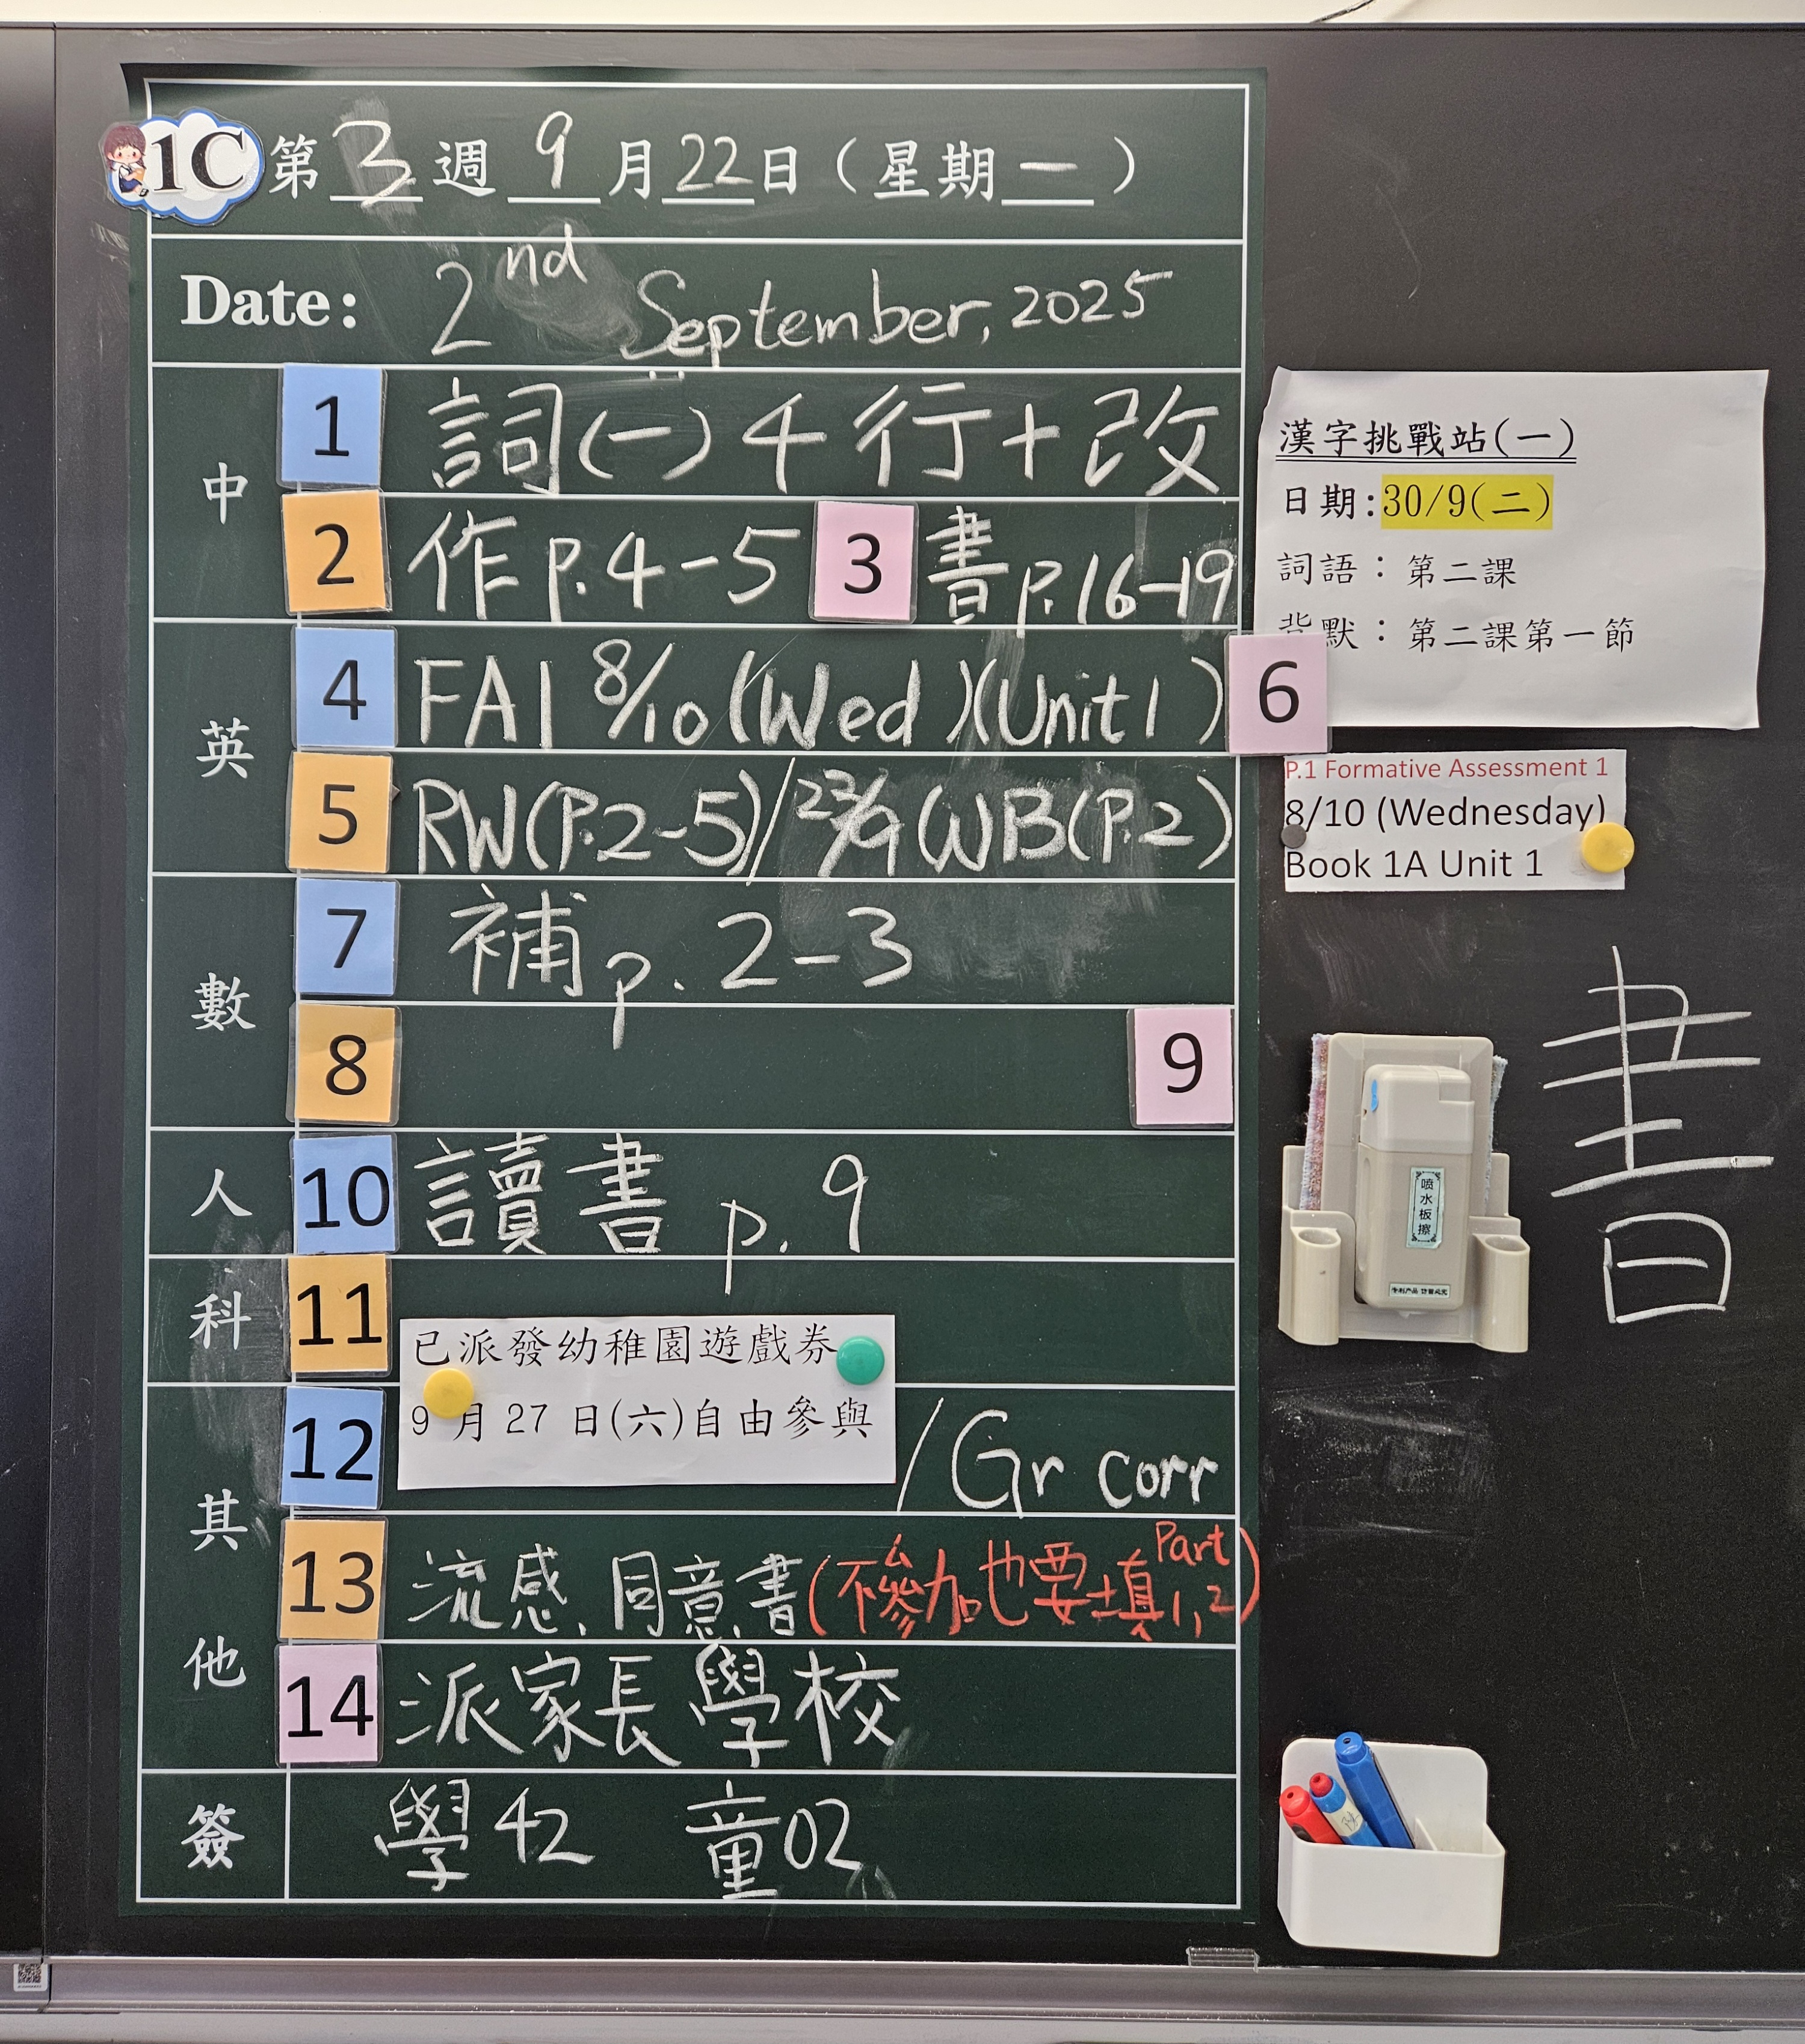 1C 第 3 週 9 月 22 日 ( 星期 一 )
Date: 2nd September, 2025
中
1 詞(一) 4 行 + 改
2 作 p. 4-5 3 書 p. 16-19
英
4 FA1 8/10 (Wed) (Unit 1) 6
5 RW(P.2-5)// 23/9 WB(P.2)
數
7 補 p. 2-3
8 9
人
10 讀書 p. 9
科
11
已派發幼稚園遊戲券
其他
12 9月27日(六)自由參與 / Gr corr
13 流感、同意書(不參加也要填 Part 1, 2)
14 派家長學校
簽 學42 童02
漢字挑戰站(一)
日期:30/9(二)
詞語：第二課
背默：第二課第一節
P.1 Formative Assessment 1
8/10 (Wednesday)
Book 1A Unit 1
書
喷水板擦